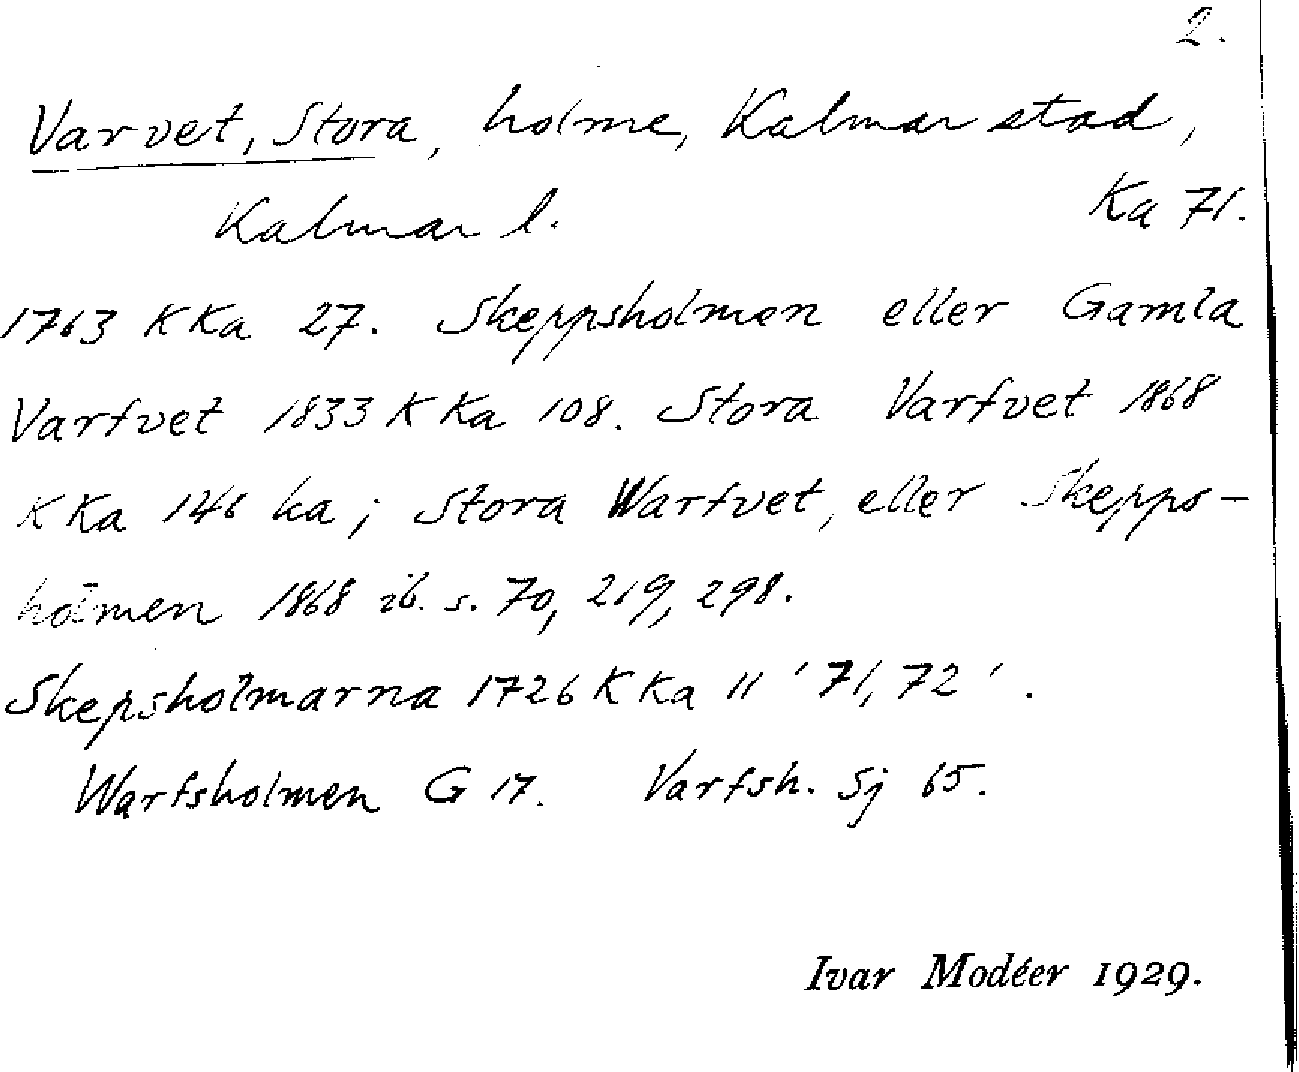 2.
Varvet, Stora, holme, Kalmar stad,
Kalmar l. Ka 71.
1763 KKa 27. Skeppsholmen eller Gamla
Varfvet 1833 KKa 108. Stora Varfvet 1868
KKa 146 ka; Stora Warfvet, eller Skepps-
holmen 1868 ib. s. 70, 219, 298.
Skepsholmarna 1726 KKa 11 '71, 72'.
Warfsholmen G 17. Varfsh. Sj 65.
Ivar Modéer 1929.